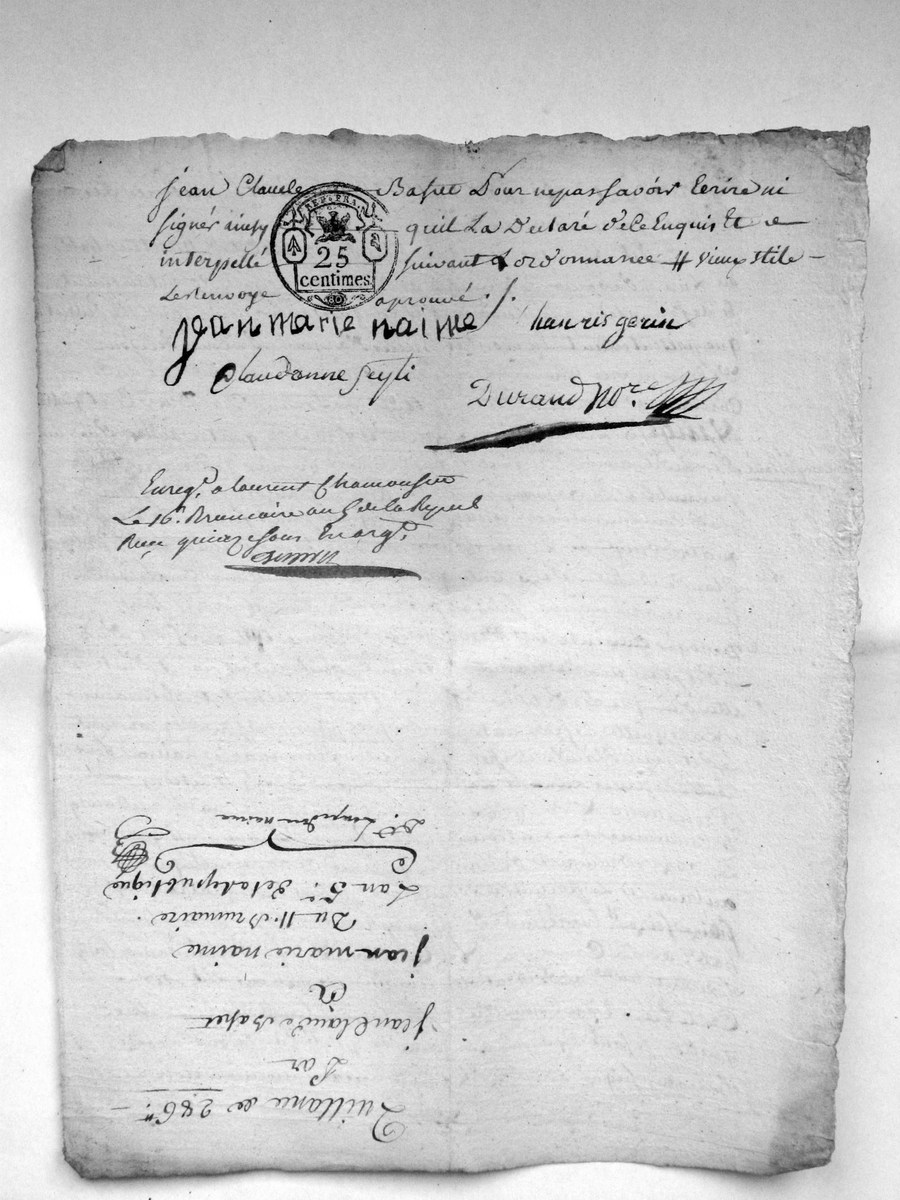 jean Claude Bapet Pour ne pas savoir Ecrire ni
signer ainsy quil La Declaré de ce Enquis Et
interpellé suivant Lordonnance # vieux stile
Le Renvoye aprouvé
REP. FRA.
25
centimes
jean marie naime
Claudanne
Durand No.re
Enreg.é a laurent Chamousset
Le 16 Brumaire an 5 de la Repub
Reçu quinze sous En arg.t
Quittance de 286#
Par
jean Claude Bapet
A
jean marie naime
Du 11. Brumaire
Lan 5.e de la republique
naime